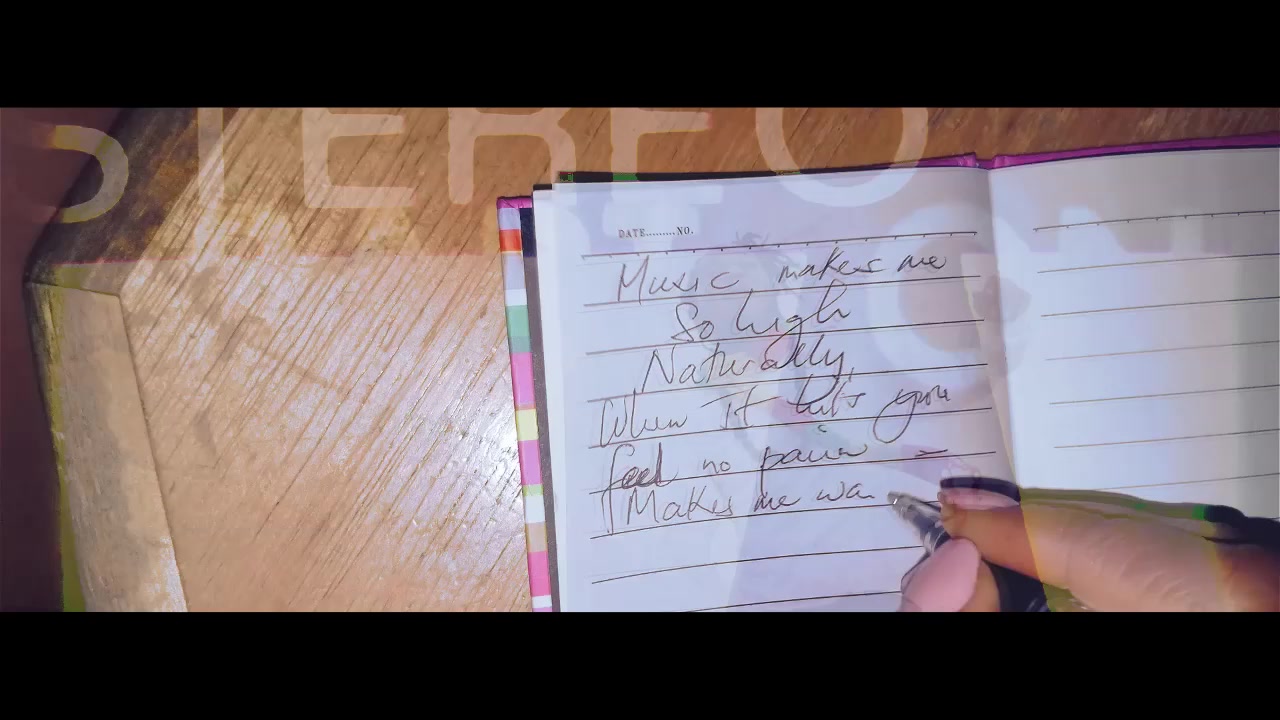 STEREO
DATE.........NO.
Music, makes me
So high
Naturally,
When It hits you
feel no pain –
Makes me wan